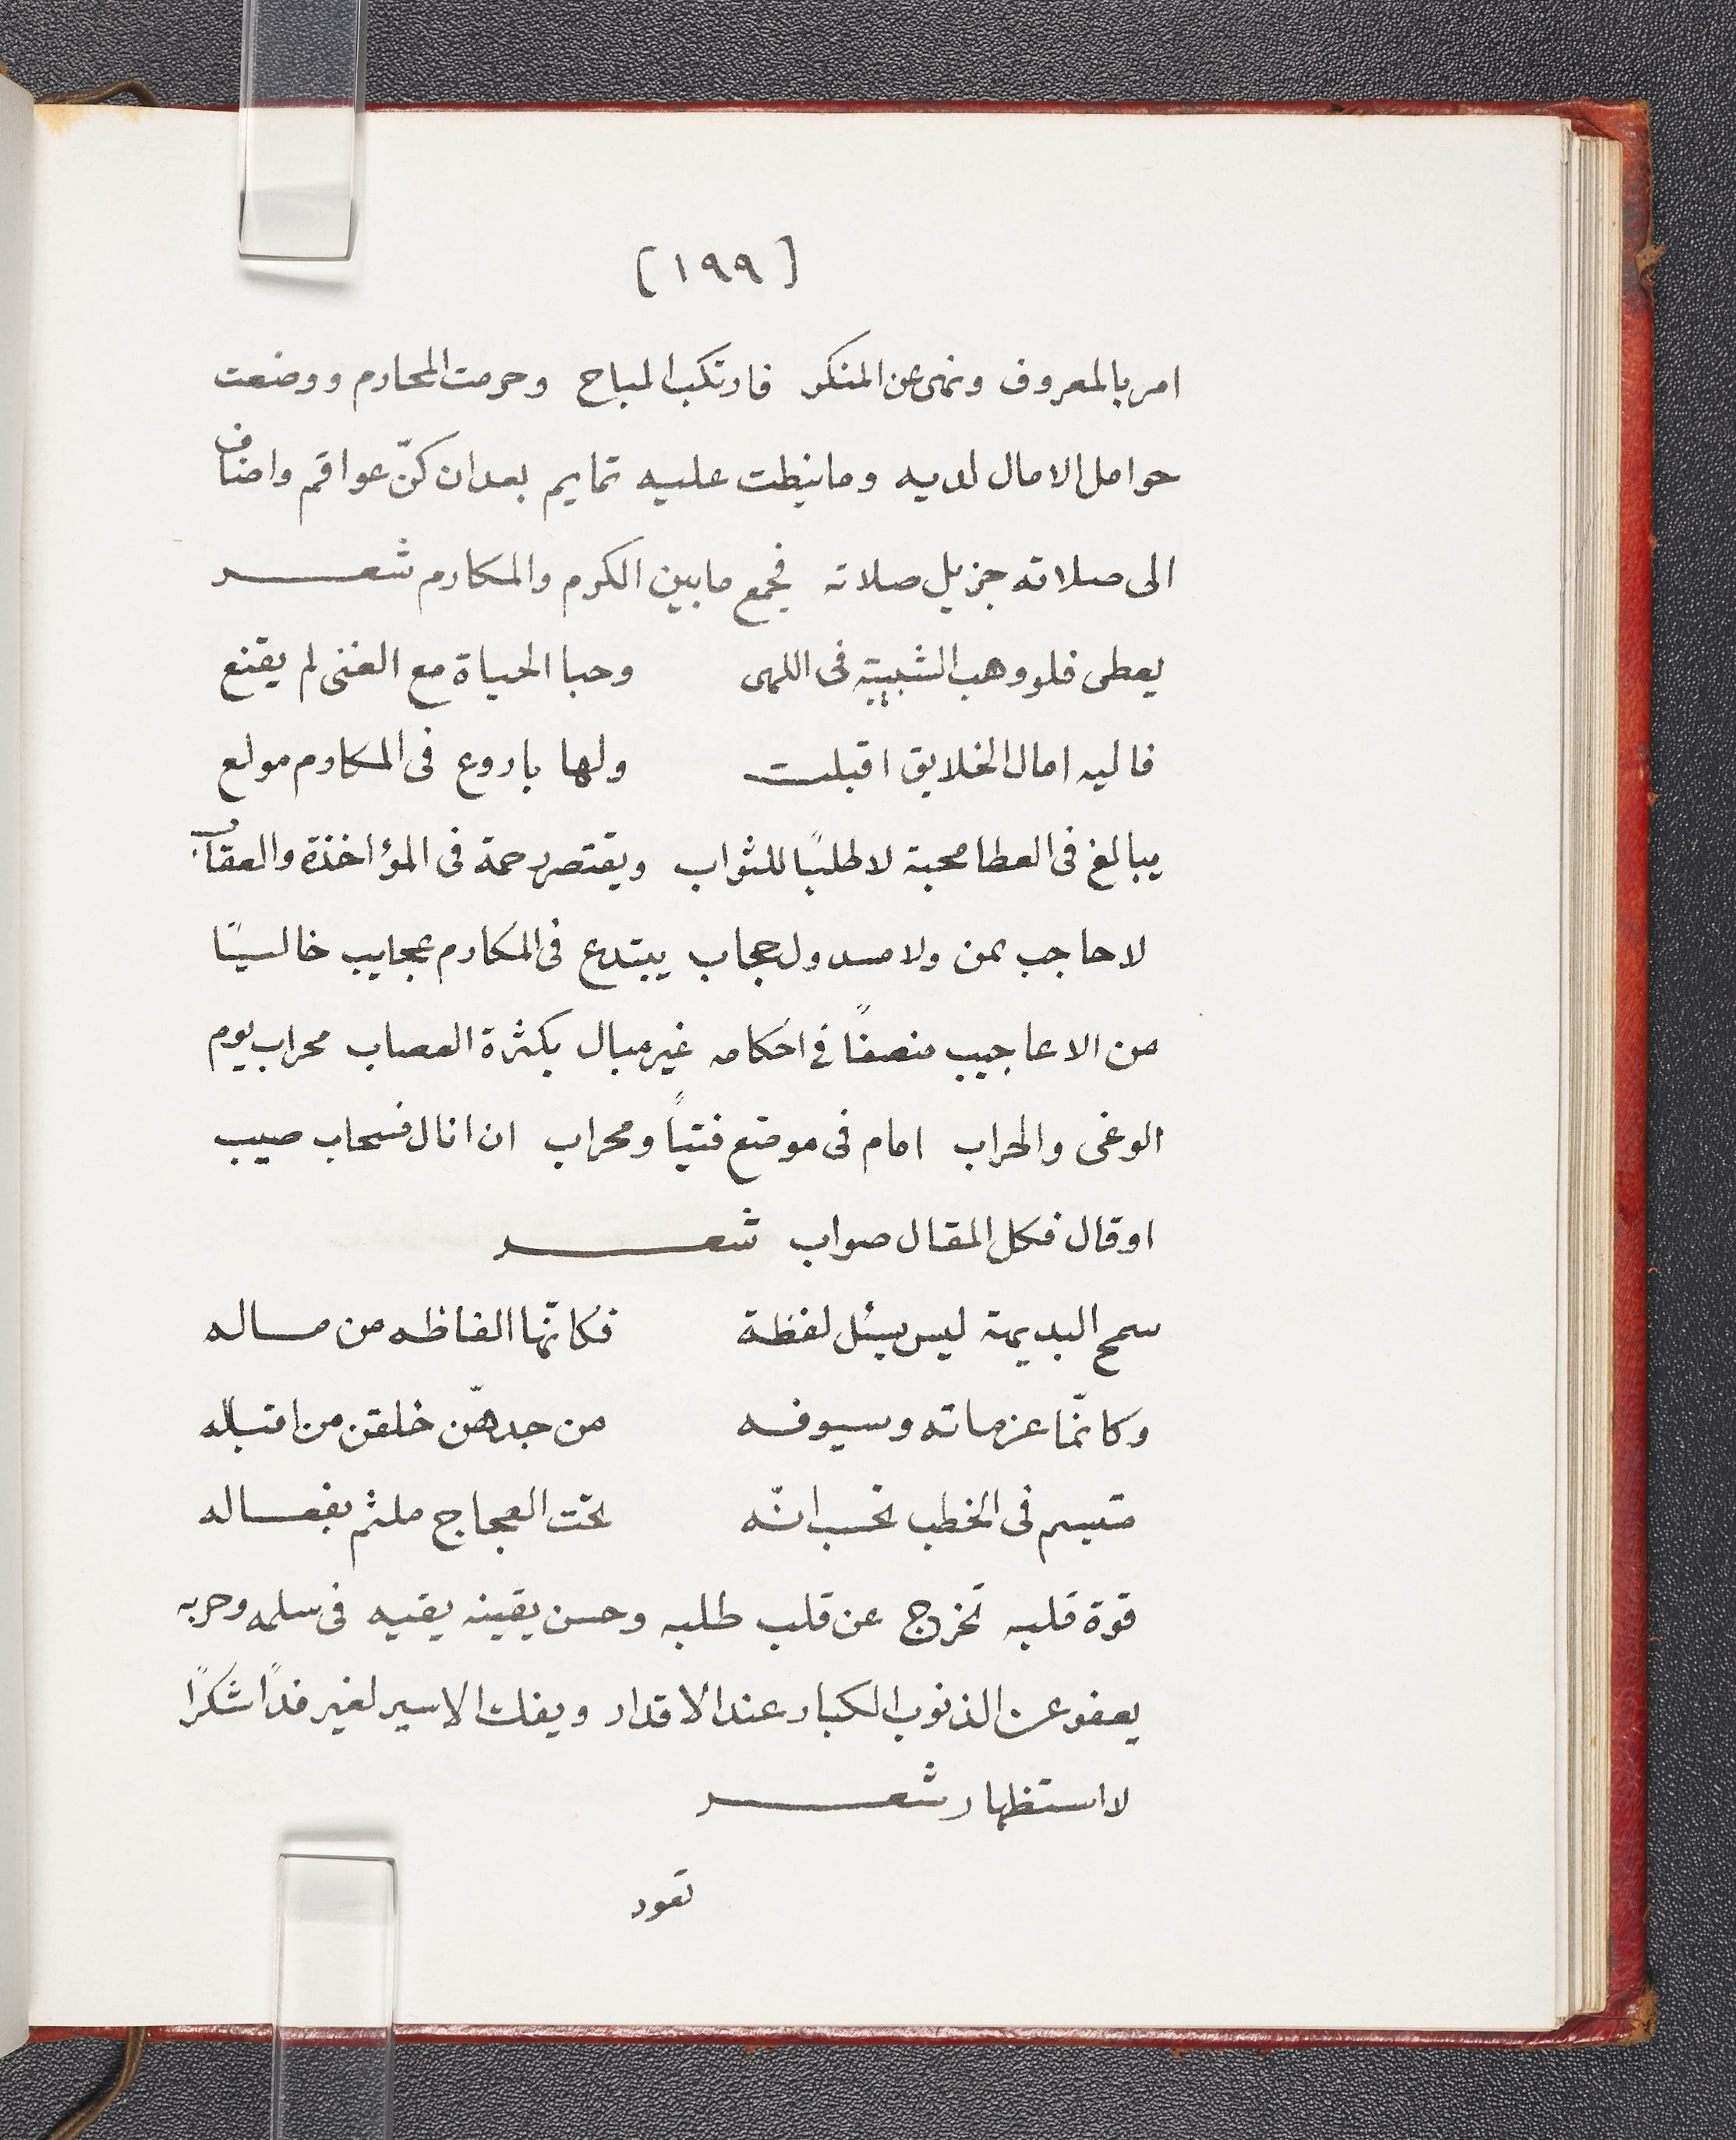 [١٩٩]
امر بالمعروف ونهى عن المنكر فارتكب المباح وحرمت المحارم ووضعت
حوامل الامال لديه وما نيطت عليه تمايم بعد ان كنّ عواقم واضاف
الى صلاته جزيل صلاته فجمع ما بين الكرم والمكارم شعر
يعطى فلو وهب الشبيبة فى اللهى وحبا الحياة مع الغنى لم يقنع
فاليه امال الخلايق اقبلت ولها باروع فى المكارم مولع
يبالغ فى العطا محبة لا طلبًا للثواب ويقتصر رحمة فى المؤاخذة والعقاب
لا حاجب بمن ولا مسدول حجاب يبتدع فى المكارم عجايب خالسيًا
من الاعاجيب منصفًا فى احكامه غير مبال بكثرة العصاب محراب يوم
الوغى والحراب امام فى موضع فتيًا ومحراب ان انال فسحاب صيب
او قال فكل المقال صواب شعر
سمح البديهة ليس يسئل لفظة فكانّها الفاظه من ماله
وكانّما عزماته وسيوفه من جدهنّ خلقن من اقباله
متبسم فى الخطب تحسب انّه تحت العجاج ملثم بفعاله
قوة قلبه تخرج عن قلب طلبه وحسن يقينه يقيه فى سلمه وحربه
يعفو عن الذنوب الكبار عند الاقدار ويفك الاسير لغير فدًا شكرًا
لا استظهار شعر
تعود